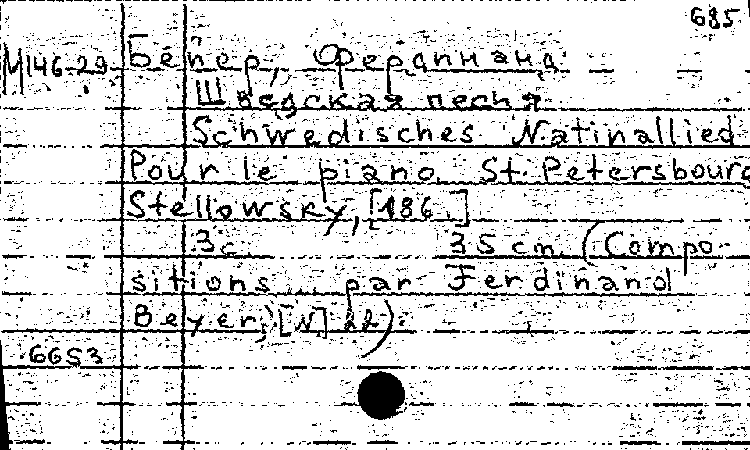 685
М146-29 Бейер, Фердинанд.
Шведская песня
Schwedisches Natinallied
Pour le piano. St. Petersbourg
Stellowsky, [186.]
3с. 35 cm. (Compo-
sitions... par Ferdinand
Beyer, [N] 22).
6653